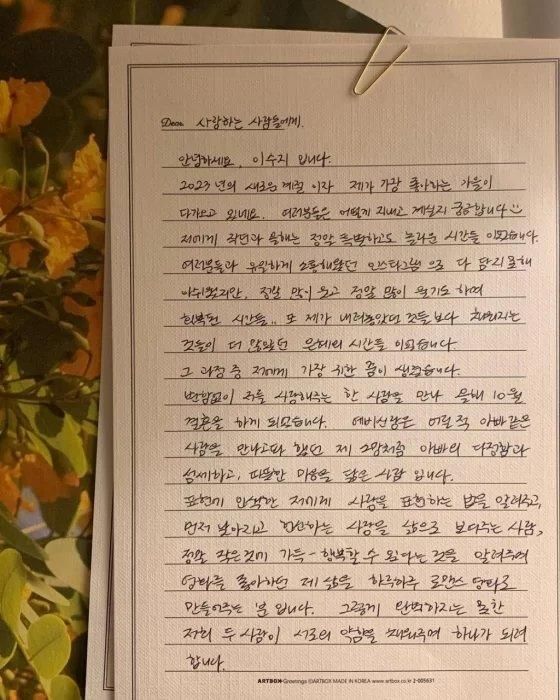 Dear. 사랑하는 사람들에게.
안녕하세요. 이수지 입니다.
2023년의 새로운 계절 이자 제가 가장 좋아하는 가을이
다가오고 있네요. 여러분들은 어떻게 지내고 계실지 궁금합니다
저에게 작년과 올해는 정말 특별하고도 놀라운 시간들 이었습니다.
여러분들과 유일하게 소통해왔던 인스타그램 으로 다 담지 못해
아쉬웠지만, 정말 많이 웃고 정말 많이 울기도 하며
회복된 시간들.. 또 제가 내려놓았던 것들 보다 채워지는
것들이 더 많았던 은혜의 시간들 이었습니다
그 과정 중 저에게 가장 귀한 꿈이 생겼습니다.
변함없이 저를 사랑해주는 한 사람을 만나 올해 10월
결혼을 하게 되었습니다. 예비신랑은 어릴 적 아빠같은
사람을 만나고파 했던 제 소망처럼 아빠의 다정함과
섬세하고, 따뜻한 마음을 닮은 사람 입니다.
표현에 인색한 저에게 사랑을 표현하는 법을 알려주고,
먼저 낮아지고 헌신하는 사랑을 삶으로 보여주는 사람,
정말 작은것에 가득- 행복할 수 있다는 것을 알려주며
영화를 좋아하던 제 삶을 하루하루 로맨스 영화로
만들어주는 분 입니다. 그렇게 완벽하지는 못한
저희 두 사람이 서로의 약함을 채워주며 하나가 되려
합니다.
ARTBOX Greetings ©ARTBOX MADE IN KOREA www.artbox.co.kr 2-005631